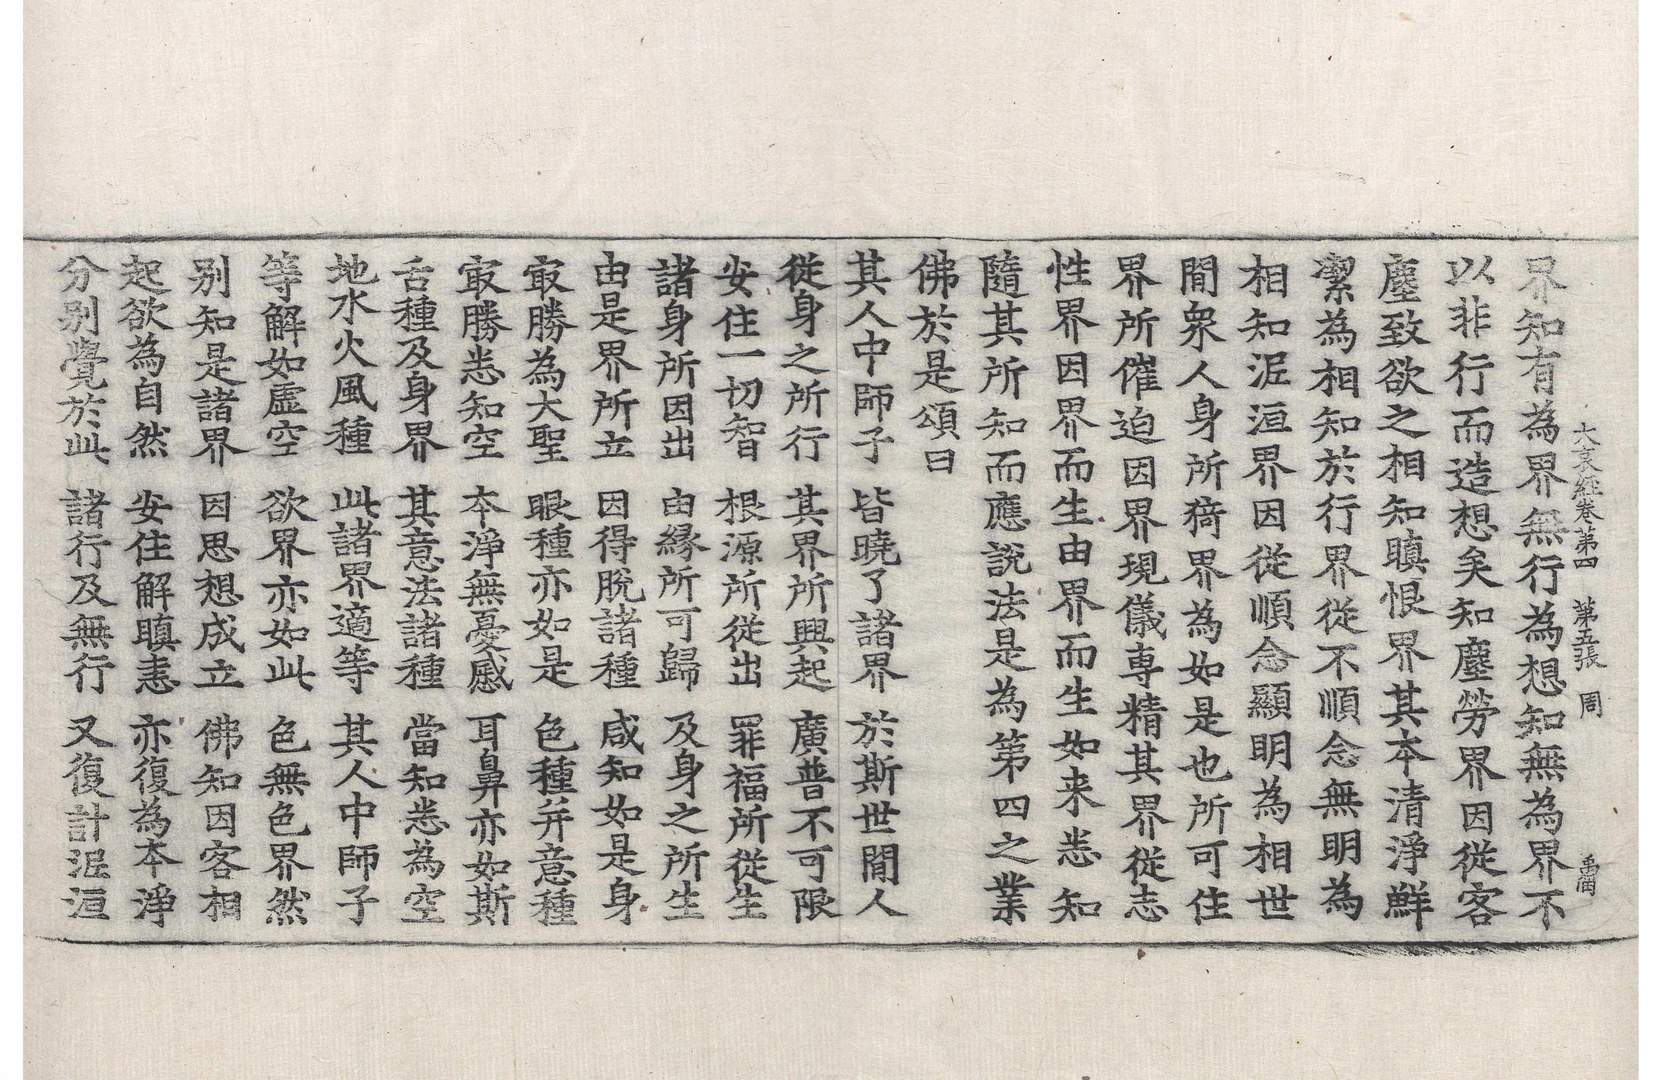 大哀經卷第四　第五張　周
界知有為界無行為想知無為界不
以非行而造想矣知塵勞界因從客
塵致欲之相知瞋恨界其本清淨鮮
潔為相知於行界從不順念無明為
相知泥洹界因從順念顯明為相世
間衆人身所猗界為如是也所可住
界所催迫因界現儀專精其界從志
性界因界而生由界而生如来悉知
隨其所知而應說法是為第四之業
佛於是頌曰
其人中師子　皆曉了諸界　於斯世間人
從身之所行　其界所興起　廣普不可限
安住一切智　根源所從出　罪福所從生
諸身所因出　由緣所可歸　及身之所生
由是界所立　因得脫諸種　咸知如是身
㝡勝為大聖　眼種亦如是　色種并意種
㝡勝悉知空　本淨無憂慼　耳鼻亦如斯
舌種及身界　其意法諸種　當知悉為空
地水火風種　此諸界適等　其人中師子
等解如虛空　欲界亦如此　色無色界然
別知是諸界　因思想成立　佛知因客相
起欲為自然　安住解瞋恚　亦復為本淨
分別覺於此　諸行及無行　又復計泥洹